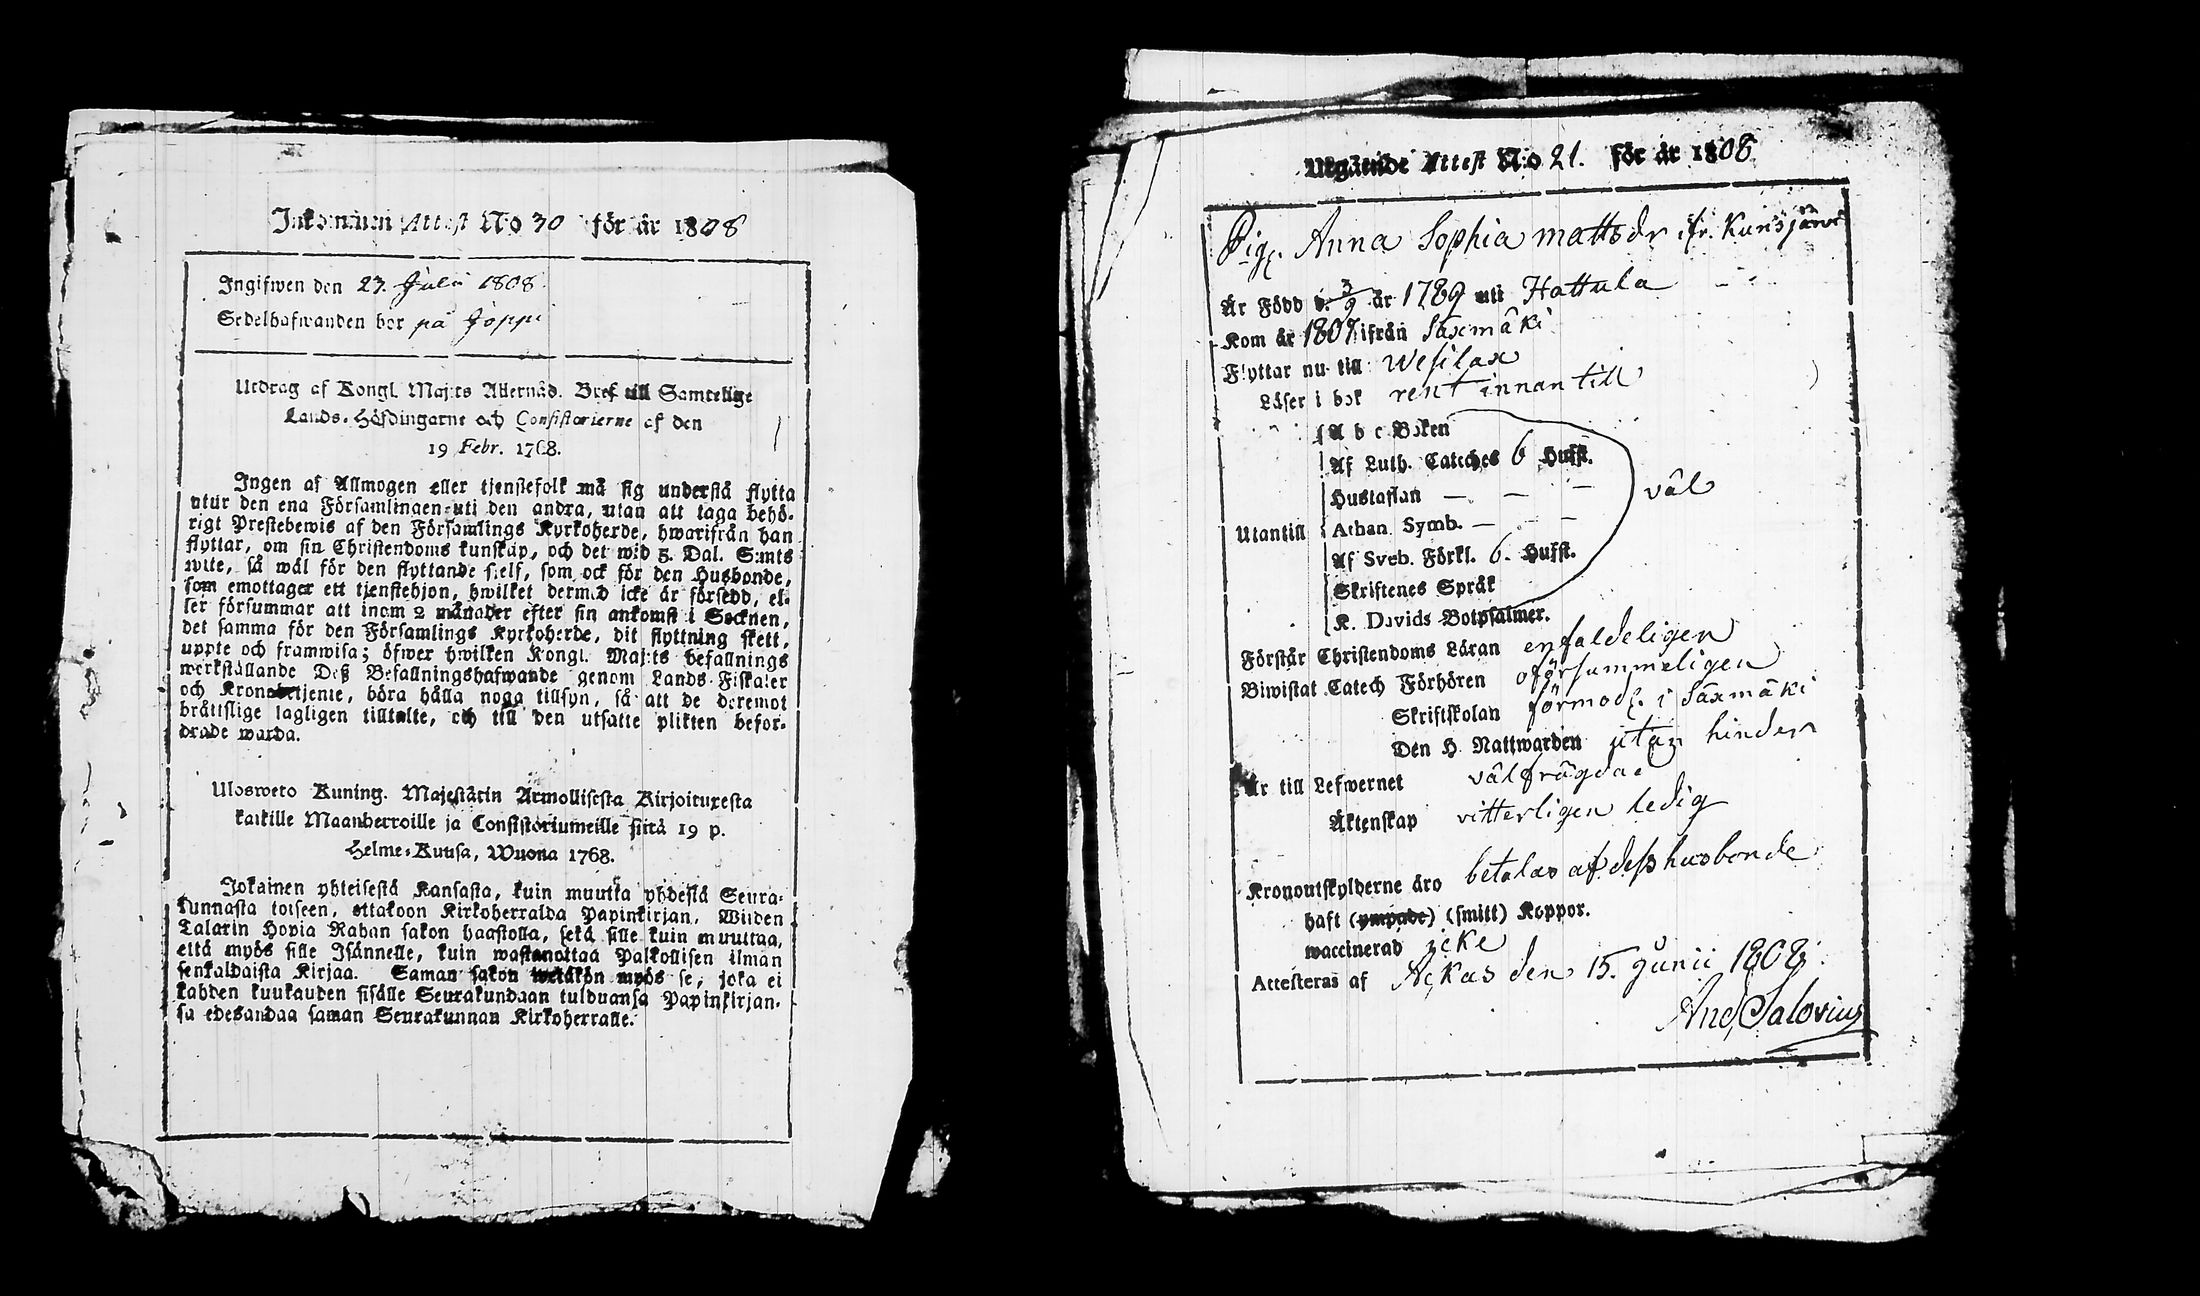 Inkommen Attest No 30 för år 1808
Ingifwen den 23. Julii 1808.
Sedelhafwanden bor på Joppi
Utdrag af Kongl. Maj:ts Allernåd. Bref till Samtelige
Lands-Höfdingarne och Consistorierne af den
19 Febr. 1768.
Ingen af Allmogen eller tjenstefolk må sig understå flytta
utur den ena Församlingen uti den andra, utan att taga behö-
rigt Prestebewis af den Församlings Kyrkoherde, hwarifrån han
flyttar, om sin Christendoms kunskap, och det wid 5. Dal. S:mts
wite, så wäl för den flyttande sielf, som ock för den Husbonde,
som emottager ett tjenstehjon, hwilket dermed icke är försedd, el-
ler försummar att inom 2 månader efter sin ankomst i Socknen,
det samma för den Församlings Kyrkoherde, dit flyttning skett,
uppte och framwisa; öfwer hwilken Kongl. Maj:ts befallnings
werkställande Deß Befallningshafwande genom Lands-Fiskaler
och Kronobetjente, böra hålla noga tillsyn, så att de deremot
bråttslige lagligen tilltalte, och till den utsatte plikten befor-
drade warda.
Ulosweto Kuning. Majestätin Armollisesta Kirjoituxesta
kaikille Maanherroille ja Consistoriumeille siitä 19 p.
Helme-Kuusa, Wuona 1768.
Jokainen yhteisestä Kansasta, kuin muutta yhdestä Seura-
kunnasta toiseen, ottakoon Kirkoherralda Papinkirjan, Wiiden
Talarin Hopia Rahan sakon haastolla, sekä sille kuin muuttaa,
että myös sille Isännelle, kuin wastanottaa Palkollisen ilman
senkaldaista Kirjaa. Saman sakon wetäkön myös se, joka ei
kahden kuukauden sisälle Seurakundaan tulduansa Papinkirjan-
sa edesandaa saman Seurakunnan Kirkoherralle.
Utgående Attest N:o 21. för år 1808
Pig. Anna Sophia mattsdr ifr. Kurisjärvi
Är Född d. 3/9 år 1789 uti Hattula
Kom år 1807 ifrån Säxmäki
Flyttar nu till Wesilax
Läser i bok rent innantill
A b c Boken
Af Luth. Cateches 6 Hufst.
Hustaflan — — —
Utantill Athan. Symb. — — väl
Af Sveb. Förkl. 6. Hufst.
Skriftenes Språk
K. Davids Botpsalmer.
Förstår Christendoms Läran enfaldeligen
Biwistat Catech Förhören oförsummeligen
Skriftskolan förmodl. i Säxmäki
Den H. Nattwarden utan hinder
Är till Lefwernet välfrägdad
Äktenskap vitterligen ledig
Kronoutskylderne äro betalas af deß husbonde
haft (ympade) (smitt) Koppor.
waccinerad icke
Attesteras af Ackas den 15. Junii 1808.
And. Salovius